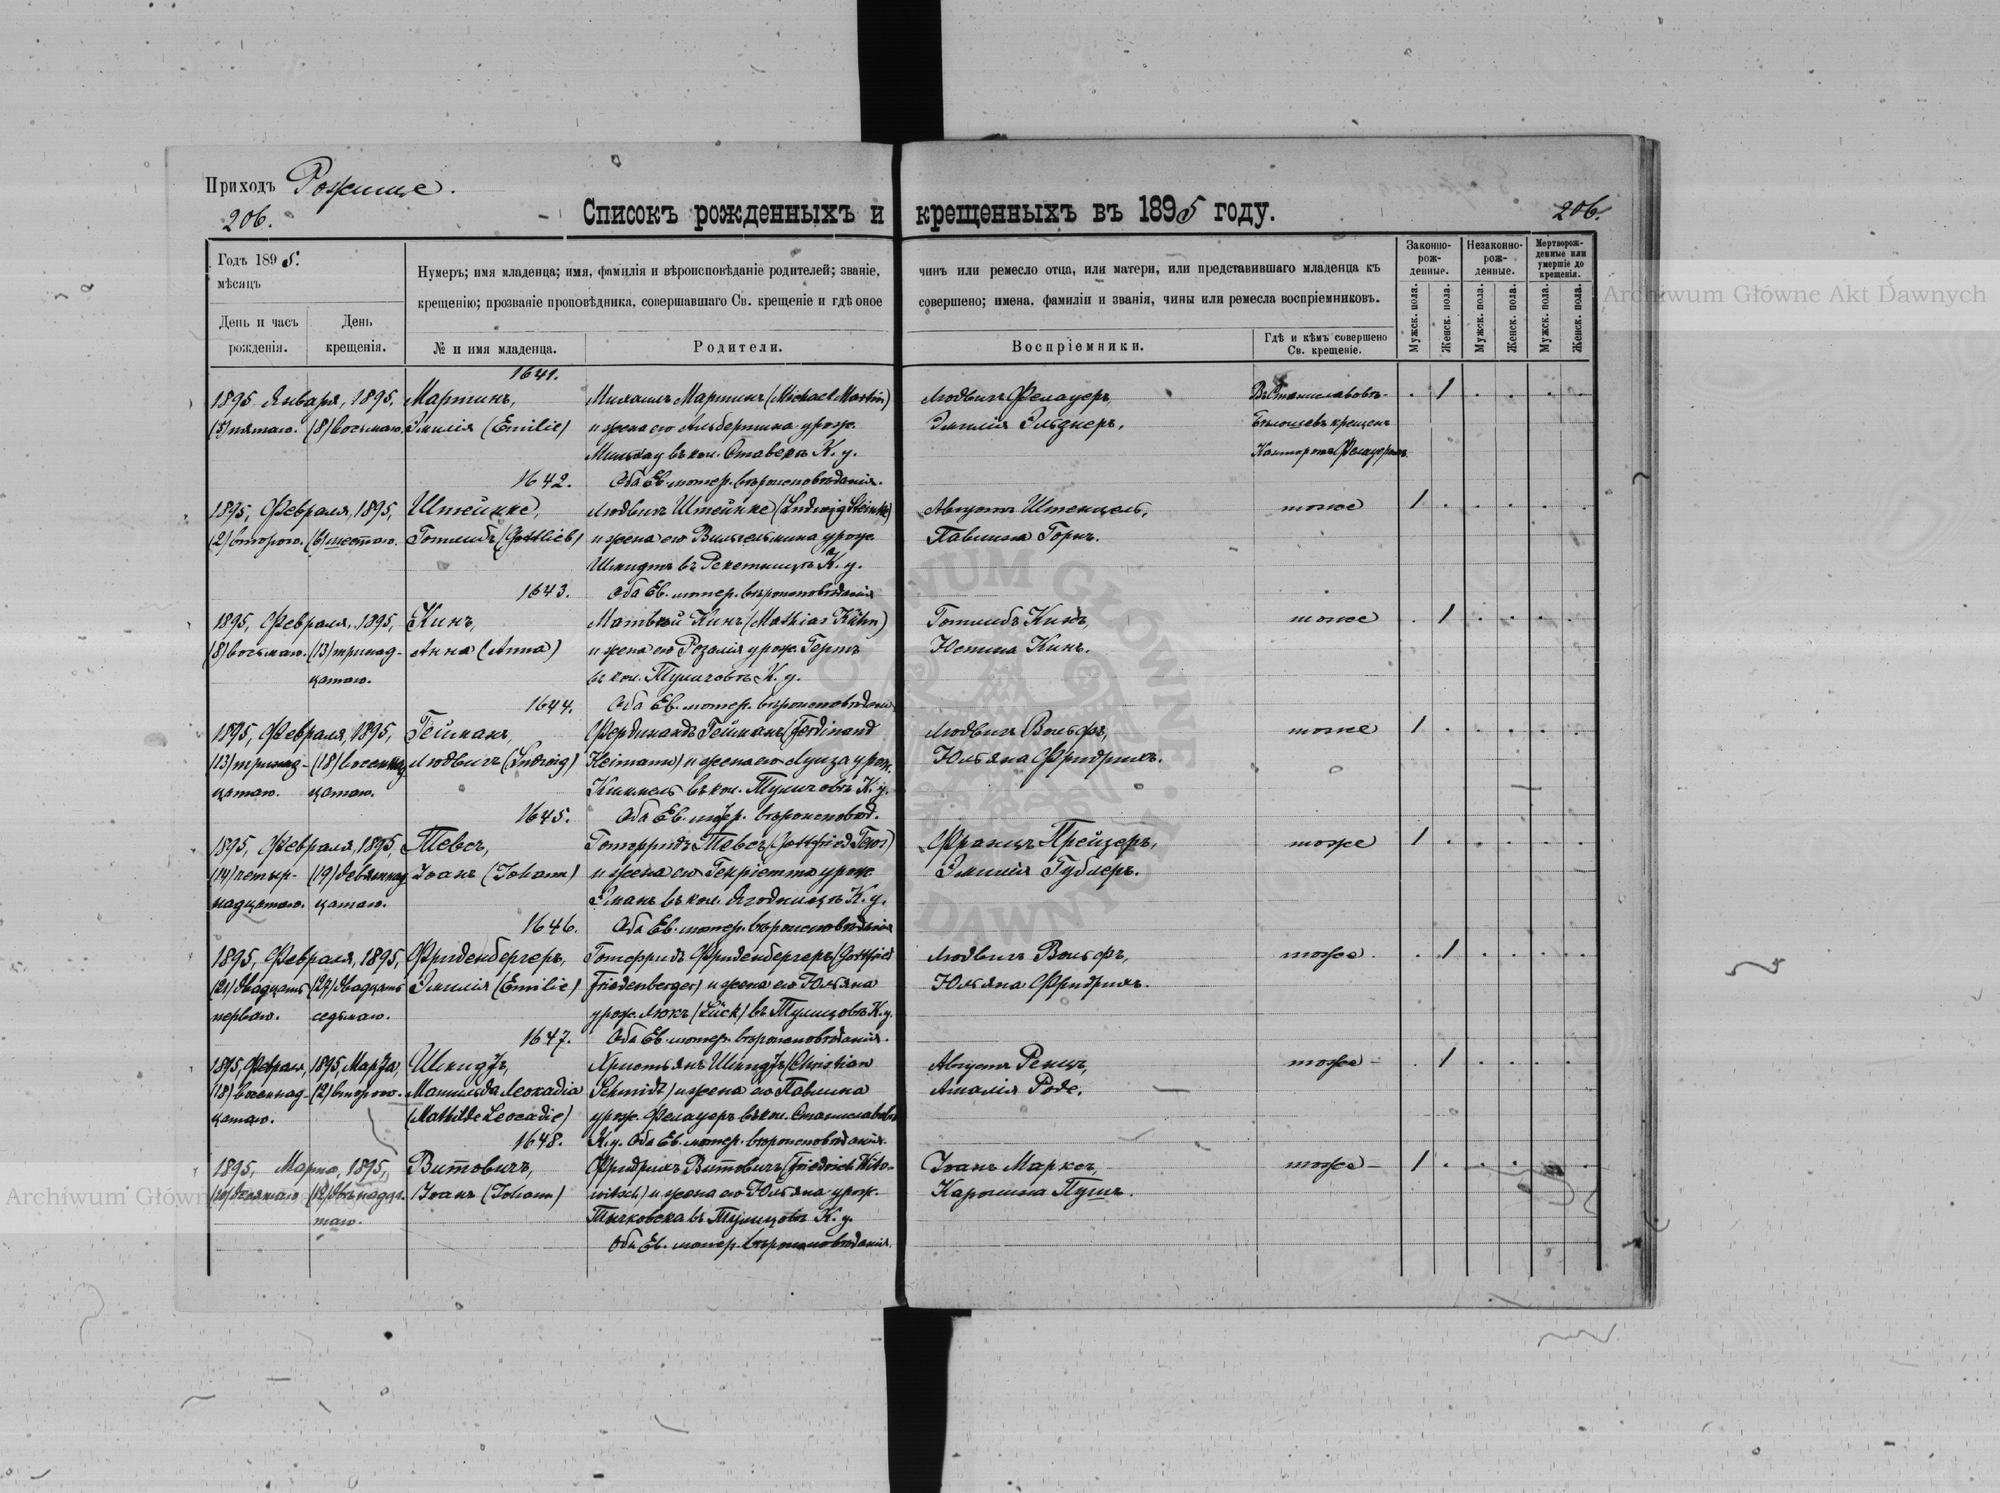 Приходъ Рожище.
206.
Списокъ рожденныхъ и крещенныхъ въ 1895 году.
206.
Годъ 1895.
мѣсяцъ
День и часъ рожденія.
День крещенія.
Нумеръ; имя младенца; имя, фамилія и вѣроисповѣданіе родителей; званіе, чинъ или ремесло отца, или матери, или представившаго младенца къ
крещенію; прозваніе проповѣдника, совершавшаго Св. крещеніе и гдѣ оное совершено; имена, фамиліи и званія, чины или ремесла воспріемниковъ.
№ и имя младенца.
Родители.
Воспріемники.
Гдѣ и кѣмъ совершено Св. крещеніе.
Законно-рож-денные.
Незаконно-рож-денные.
Мертворож-денные или умершіе до крещенія.
Мужск. пола.
Женск. пола.
Мужск. пола.
Женск. пола.
Мужск. пола.
Женск. пола.
1641.
1895 Января, 1895, Мартинъ, Михаилъ Мартинъ (Michael Martin) Людвигъ Фелауеръ . 1 . . . .
(5) пятаго. (8) восьмаго. Эмилія (Emilie) и жена его Альбертина урож. Эмилія Эльзнеръ, крещен
въ кол. Ставекъ К. у. Канторомъ Фелауеромъ
1642. Оба Ев. лютер. вѣроисповѣданія.
1895, Февраля, 1895, Штейнке, Людвигъ Штейнке (Ludwig Steinke) Августъ Штенцель, тоже 1 . . . . .
(2) втораго. (6) шестаго. Готлибъ (Gottlieb) и жена его Вильгельмина урож. Павлина Горнъ.
Шмидтъ въ К. у.
1643. Оба Ев. лютер. вѣроисповѣданія
1895, Февраля, 1895, Кинъ, Матвѣй Кинъ (Mathias Kühn) Готлибъ тоже . 1 . . . .
(8) восьмаго. (13) тринад- Анна (Anna) и жена его Розалія урож. Гертъ Юстина Кинъ.
цатаго. въ кол. Туличовъ К. у.
1644. Оба Ев. лютер. вѣроисповѣданія
1895, Февраля, 1895, Гейманъ, Фердинандъ Гейманъ (Ferdinand Людвигъ Вольфъ, тоже 1 . . . . .
(13) тринад- (18) восемнад Людвигъ (Ludwig) Heimann) и жена его Луиза урож. Юльяна Фридрихъ.
цатаго. цатаго. Киммель въ кол. Туличовъ К. у.
1645. Оба Ев. лютер. вѣроисповѣд.
1895, Февраля, 1895, Тевсъ, Готфридъ Тевсъ (Gottfried Tews) Францъ Прейцеръ, тоже 1 . . . . .
(14) четыр- (19) девятнад Іоанъ (Johann) и жена его Генріетта урож. Эмилія Гублеръ.
надцатаго. цатаго. въ кол. К. у.
1646. Оба Ев. лютер. вѣроисповѣданія
1895, Февраля, 1895, Фриденбергеръ, Готфридъ Фриденбергеръ (Gottfried Людвигъ Вольфъ, тоже . . 1 . . . .
(21) двадцать (27) двадцать Эмилія (Emilie) Friedenberger) и жена его Юльяна Юльяна Фридрихъ.
перваго. седьмаго. урож. Люкъ (Lück) въ Тулицовъ К. у.
1647. Оба Ев. лютер. вѣроисповѣданія.
1895, Февраля, 1895, Марта, Шмидтъ, Христьянъ Шмидтъ (Christian Августъ Ренцъ, тоже – . 1 . . . .
(18) восемнад- (2) втораго. Матильда Леокадіа Schmidt) и жена его Павлина Амалія Роде.
цатаго. (Mathilde Leocadie) урож. Фелауеръ въ кол. Станиславовъ
1648. К. у. Оба Ев. лютер. вѣроисповѣданія.
1895, Марта, 1895, Витовичъ, Фридрихъ Витовичъ (Friedrich Wito- Іоанъ Марксъ, тоже – 1 . . . . .
(10) десятаго (12) двѣнадца- Іоанъ (Johann) witsch) и жена его Юльяна урож. Каролина Пушъ.
таго. въ Тулицовъ К. у.
Оба Ев. лютер. вѣроисповѣданія.
Archiwum Główne Akt Dawnych
Archiwum Główne Akt Dawnych